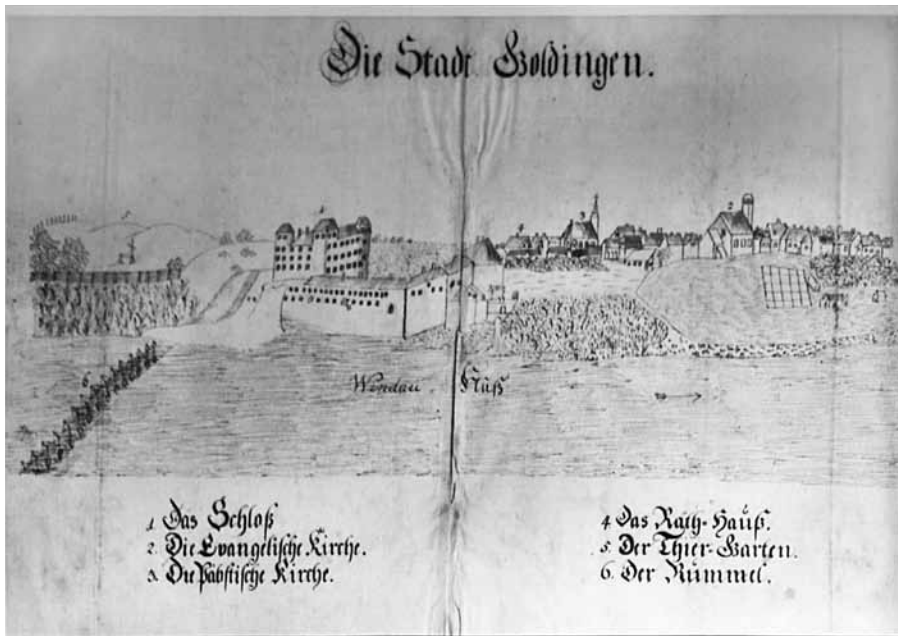 Die Stadt Goldingen.
Windau. Flüß
6
1 Das Schloß
2. Die Evangelische Kirche.
3. Die Päbstische Kirche.
4 Das Rath-Hauß.
5. Der Thier-Garten.
6. Der Rummel.